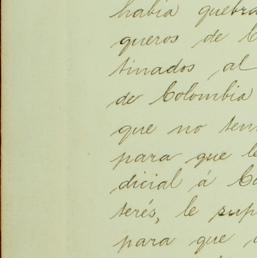 había quebra
queros de C
tinados al
de Colombia
que no ten
para que le
dicial á Co
terés, le sup
para que